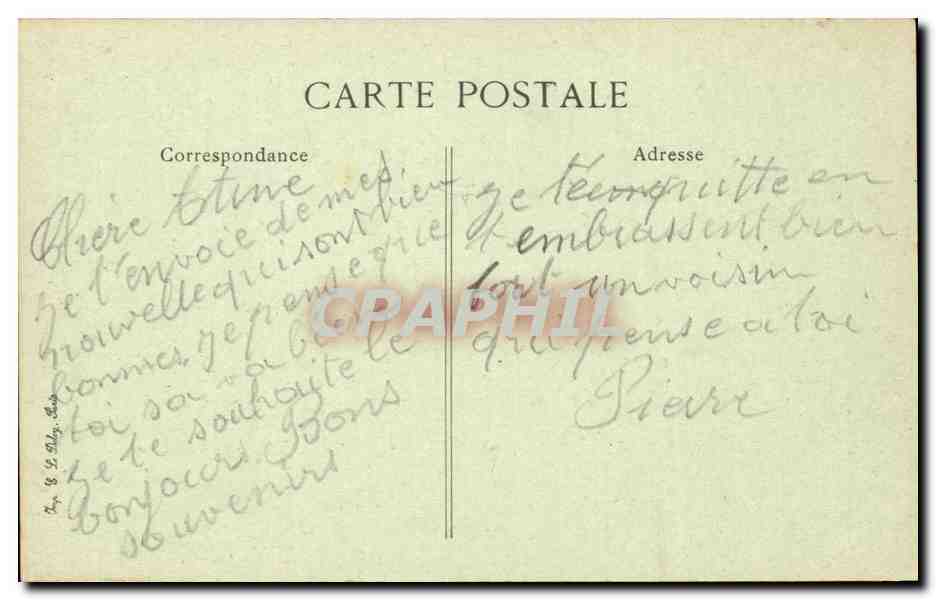 CARTE POSTALE
Correspondance
Chère
je t'envoie de mes
nouvelle qui sont bien
bonnes, je pense que
toi sa va bien
je te souhaite le
bonjours Bons
souvenirs
Adresse
je quitte en
t embrassent bien
fort un voisin
qui pense a toi
Piere
Imp. E. Le Deley, Paris
CPAPHIL